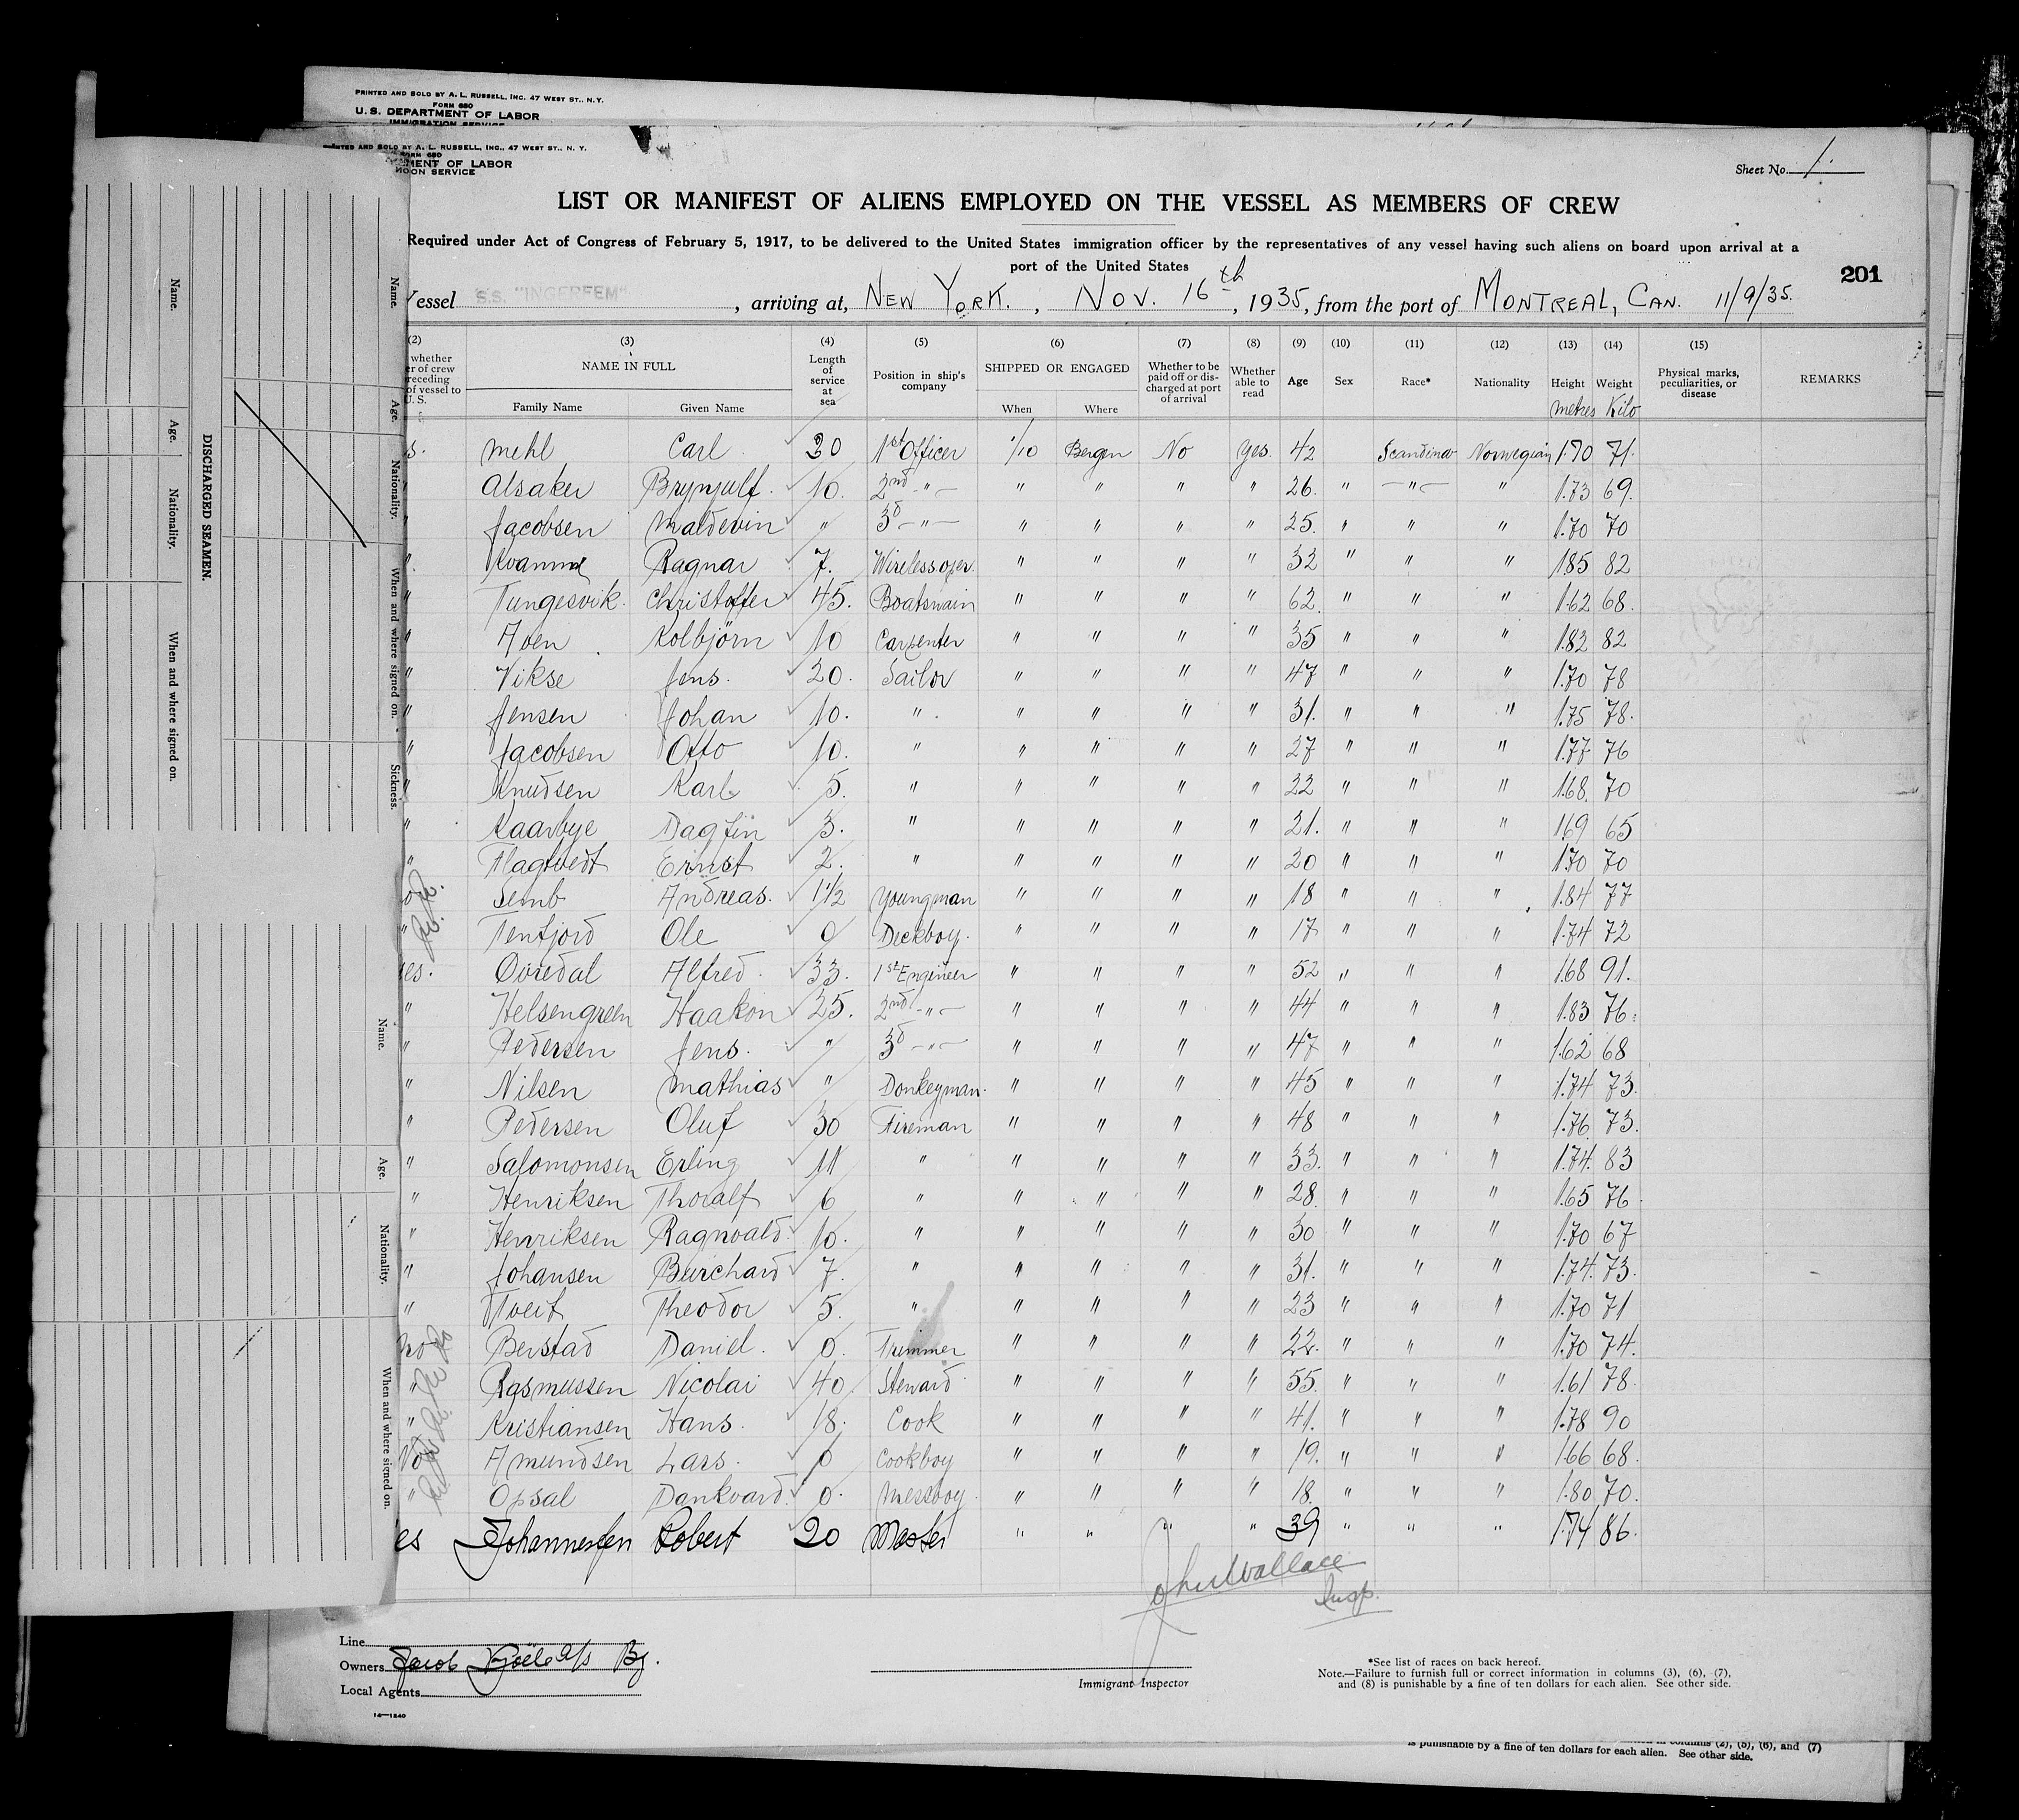 PRINTED AND SOLD BY A. L. RUSSELL, INC. 47 WEST ST., N.Y.
FORM 680
U. S. DEPARTMENT OF LABOR
IMMIGRATION SERVICE
PRINTED AND SOLD BY A. L. RUSSELL, INC., 47 WEST ST., N. Y.
MENT OF LABOR
SERVICE
Sheet No. 1.
LIST OR MANIFEST OF ALIENS EMPLOYED ON THE VESSEL AS MEMBERS OF CREW
Required under Act of Congress of February 5, 1917, to be delivered to the United States immigration officer by the representatives of any vessel having such aliens on board upon arrival at a
port of the United States
201
Vessel S.S. "INGERFEM", arriving at, NEW YORK., NOV. 16th, 1935, from the port of MONTREAL, CAN. 11/9/35.
(2) (3) (4) (5) (6) (7) (8) (9) (10) (11) (12) (13) (14) (15)
whether er of crew receding of vessel to U. S. NAME IN FULL Family Name Given Name Length of service at sea Position in ship's company SHIPPED OR ENGAGED When Where Whether to be paid off or discharged at port of arrival Whether able to read Age Sex Race* Nationality Height metres Weight Kilo Physical marks, peculiarities, or disease REMARKS
s. Mehl Carl 30 1st Officer 1/10 Bergen No Yes. 42 Scandinav Norwegian 1.70 71.
" Alsaker Brynjulf. 10. 2nd -"- " " " " 26. " -"- " 1.73 69.
" Jacobsen Maldevin " 3d -"- " " " " 25. " " " 1.70 70
" Kvamme Ragnar 7. Wireless oper. " " " " 32 " " " 1.85 82
" Tungesvik. Christoffer 45. Boatswain " " " " 62. " " " 1.62 68.
" Aoen Kolbjörn 10 Carpenter " " " " 35 " " " 1.82 82
" Vikse Jens. 20. Sailor " " " " 47 " " " 1.70 78
" Jensen Johan 10. " " " " " 31. " " " 1.75 78.
" Jacobsen Otto 10. " " " " " 27 " " " 1.77 76
" Knudsen Karl 5. " " " " " 22 " " " 1.68. 70
" Kaarbye Dagfin 3. " " " " " 21. " " " 1.69 65
" Flagtvedt Ernst 2. " " " " " 20 " " " 1.70 70
Semb Andreas. 1 1/2 Youngman " " " " 18 " " " 1.84 77
" Tenfjord Ole 0 Deckboy. " " " " 17 " " " 1.74 72
es.Övredal Alfred. 33. 1st Engineer " " " " 52 " " " 1.68 91.
" Helsengreen Haakon 25. 2nd -"- " " " " 44 " " " 1.83 76.
" Pedersen Jens. " 3d -"- " " " " 47 " " " 1.62 68
" Nilsen Mathias " Donkeyman. " " " " 45 " " " 1.74 73.
" Pedersen Oluf 30 Fireman " " " " 48 " " " 1.76. 73.
" Salomonsen Erling 11 " " " " " 33. " " " 1.74. 83
" Henriksen Thoralf 6 " " " " " 28. " " " 1.65 76.
" Henriksen Ragnvald. 10. " " " " " 30 " " " 1.70 67
" Johansen Burchard 7. " " " " " 31. " " " 1.74. 73.
" Tveit Theodor 5. " " " " " 23 " " " 1.70 71
no Berstad Daniel. 0. Trimmer " " " " 22. " " " 1.70 74.
" Rasmussen Nicolai 40. Steward " " " " 55. " " " 1.61 78.
" Kristiansen Hans. 18. Cook " " " " 41. " " " 1.78 90
No Amundsen Lars. 0 Cookboy " " " " 19. " " " 1.66 68.
" Opsal Dankvard. 0. Messboy. " " " " 18. " " " 1.80 70.
es Johannessen Robert 20 Master " " " " 39 " " " 1.74 86.
John Wallace
Insp.
Line
Owners Jacob Kjöde A/S Bg.
Local Agents
14—1240
Immigrant Inspector
*See list of races on back hereof.
Note.—Failure to furnish full or correct information in columns (3), (6), (7),
and (8) is punishable by a fine of ten dollars for each alien. See other side.
columns (2), (5), (6), and (7)
is punishable by a fine of ten dollars for each alien. See other side.
DISCHARGED SEAMEN.
Name. Age. Nationality. When and where signed on.
Name. Age. Nationality. When and where signed on. Sickness.
Name. Age. Nationality. When and where signed on.